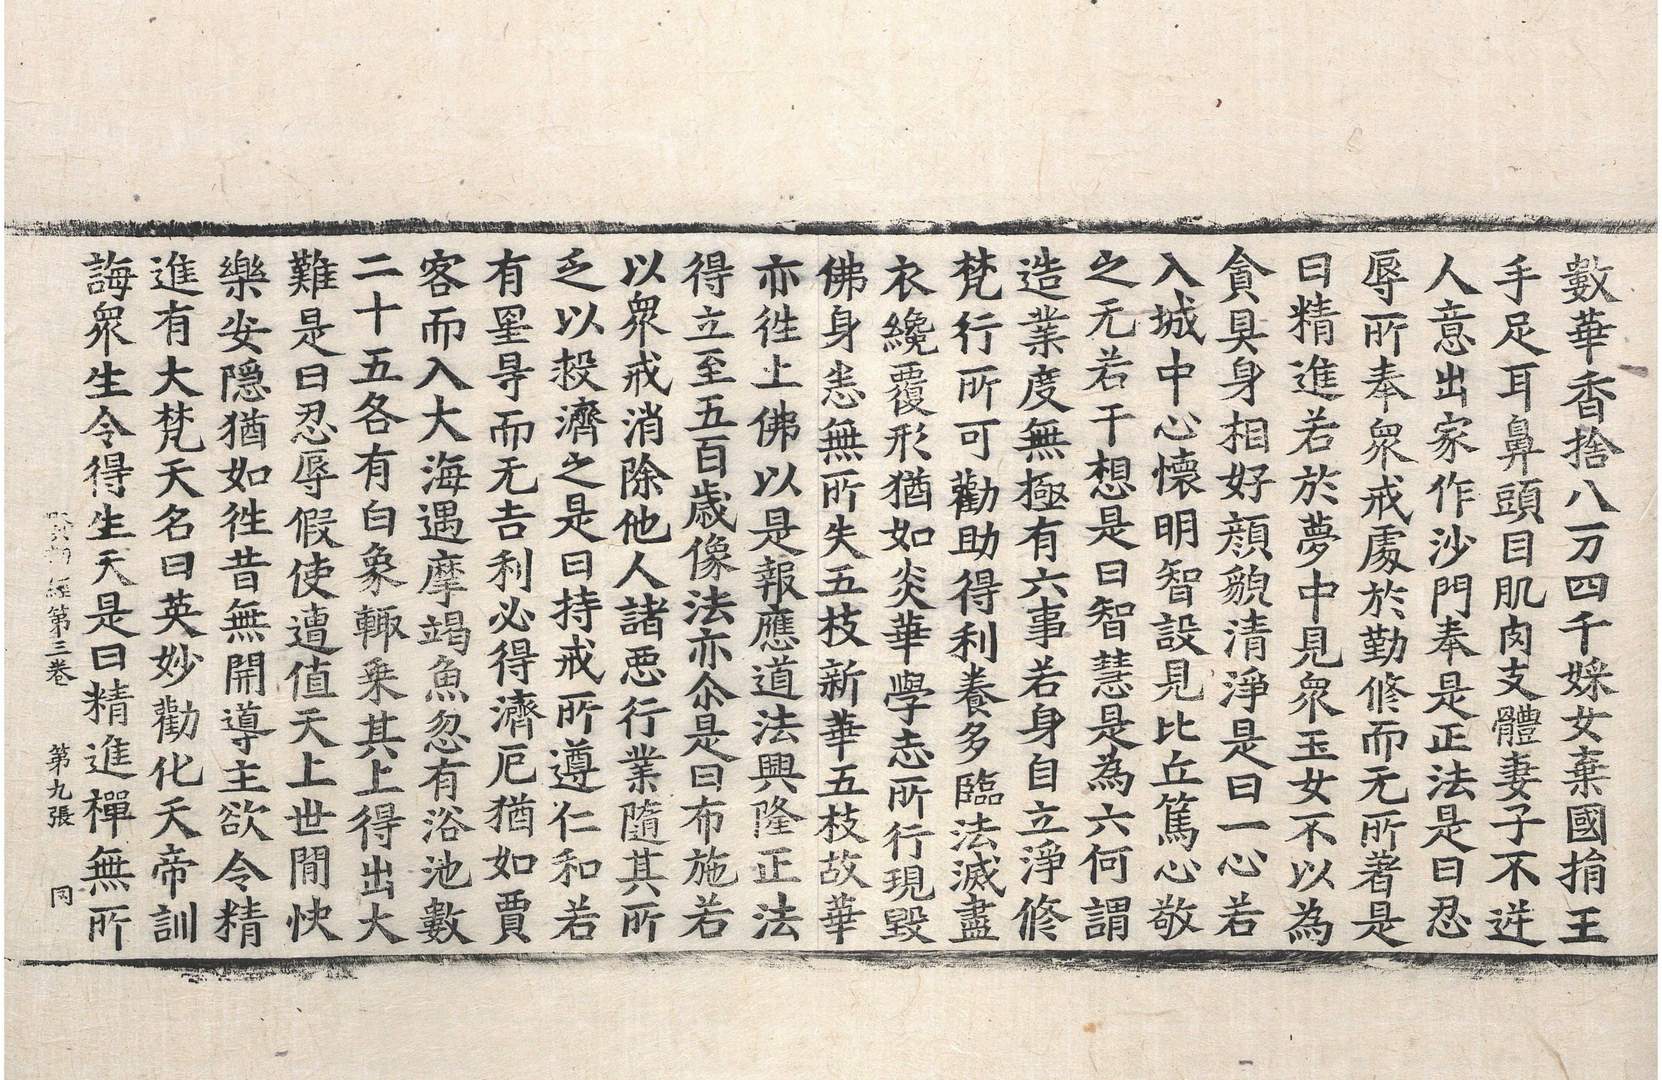 數華香捨八万四千婇女棄國捐王
手足耳鼻頭目肌肉支體妻子不逆
人意出家作沙門奉是正法是曰忍
辱所奉衆戒處於勤修而无所著是
曰精進若於夢中見衆玉女不以為
貪具身相好顔貌清淨是曰一心若
入城中心懷明智設見比丘篤心敬
之无若干想是曰智慧是為六何謂
造業度無極有六事若身自立淨修
梵行所可勸助得利養多臨法滅盡
衣纔覆形猶如炎華學志所行現毀
佛身恚無所失五枝新華五枝故華
亦徃上佛以是報應道法興隆正法
得立至五百歲像法亦尒是曰布施若
以衆戒消除他人諸惡行業隨其所
乏以投濟之是曰持戒所遵仁和若
有罣㝵而无吉利必得濟厄猶如賈
客而入大海遇摩竭魚忽有浴池數
二十五各有白象輙乗其上得出大
難是曰忍辱假使遭值天上世間快
樂安隱猶如徃昔無開導主欲令精
進有大梵天名曰英妙勸化天帝訓
誨衆生令得生天是曰精進禪無所
經第三卷 第九張 同